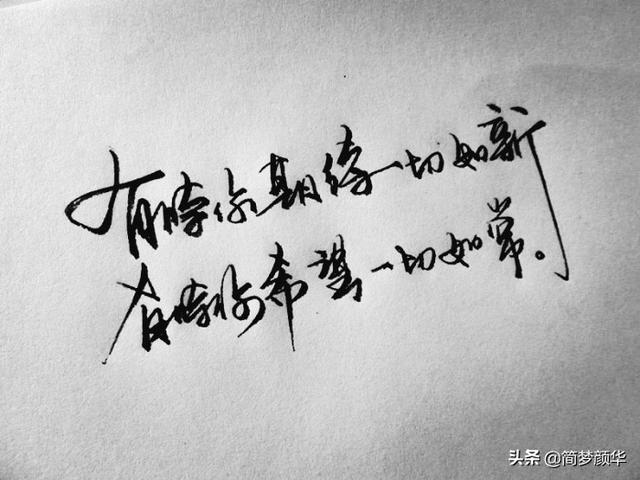 有时你期待一切如新
有时你希望一切如常。
头条 @简梦颜华